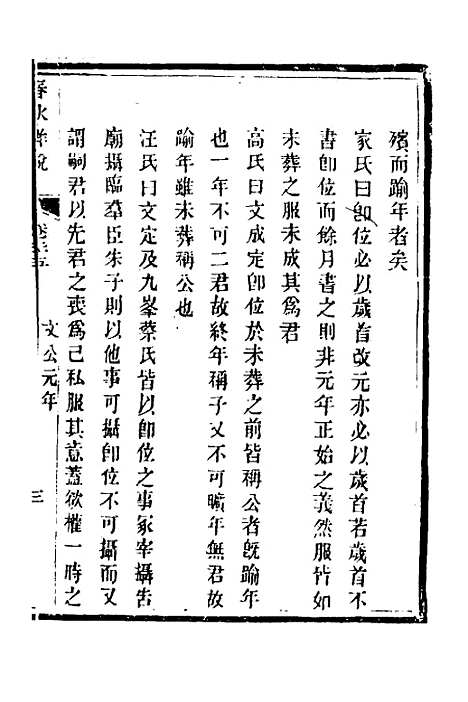 殯而踰年者矣
家氏曰卽位必以歲首改元亦必以歲首若歲首不
書卽位而餘月書之則非元年正始之義然服皆如
未葬之服未成其爲君
高氏曰文成定卽位於未葬之前皆稱公者旣踰年
也一年不可二君故終年稱子又不可曠年無君故
踰年雖未葬稱公也
汪氏曰文定及九峯蔡氏皆以卽位之事冢宰攝告
廟攝臨羣臣朱子則以他事可攝卽位不可攝而又
謂嗣君以先君之喪爲己私服其意蓋欲權一時之
春秋 說
文公元年
三